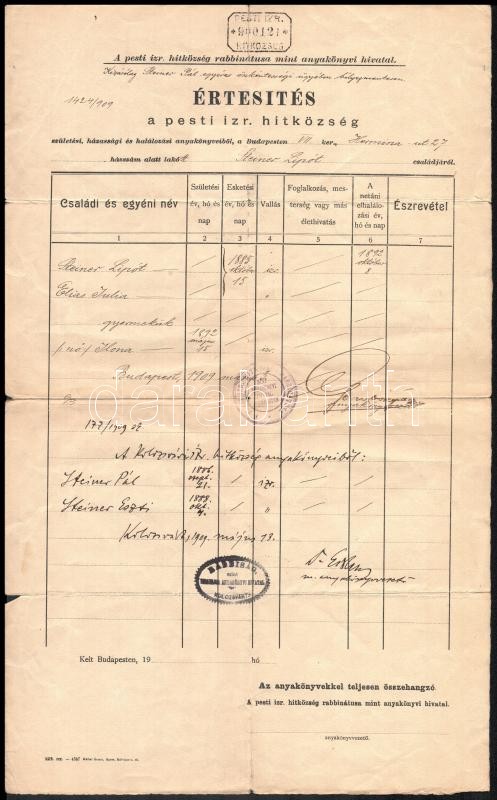 PESTI IZR.
900121
HITKÖZSÉG
A pesti izr. hitközség rabbinátusa mint anyakönyvi hivatal.
Steiner Pál egyéves önkéntességi ügyében
1424/909
ÉRTESITÉS
a pesti izr. hitközség
születési, házassági és halálozási anyakönyveiből, a Budapesten VII ker., Hermina út 27
házszám alatt lakott Steiner Lipót családjáról.
Családi és egyéni név
Születési év, hó és nap
Esketési év, hó és nap
Vallás
Foglalkozás, mesterség vagy más élethivatás
A netáni elhalálozási év, hó és nap
Észrevétel
1 2 3 4 5 6 7
Steiner Lipót 1885 október 15 izr. 1892 október 8
Elias Julia "
gyermekük
/:nő:/ Ilona 1892 május 15 izr.
Budapest, 1909. május
177/1909 sz
A Kolozsvári izr. hitközség anyakönyveiből:
Steiner Pál 1886. szept. 21. izr.
Steiner Eszti 1888. okt. 4. "
Kolozsvárt, 1909. május 13.
m. anyakönyvvezető
RABBISÁG
KOLOZSVÁRTT
Kelt Budapesten, 19 hó
Az anyakönyvekkel teljesen összehangzó.
A pesti izr. hitközség rabbinátusa mint anyakönyvi hivatal.
anyakönyvvezető.
darabanth